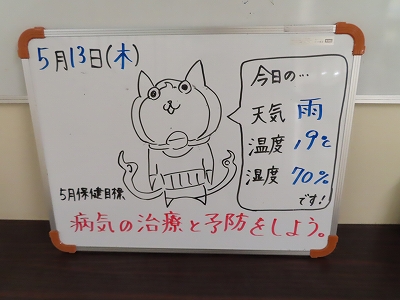 5月13日(木)
今日の…
天気 雨
温度 19℃
湿度 70%
です!
5月保健目標
病気の治療と予防をしよう。